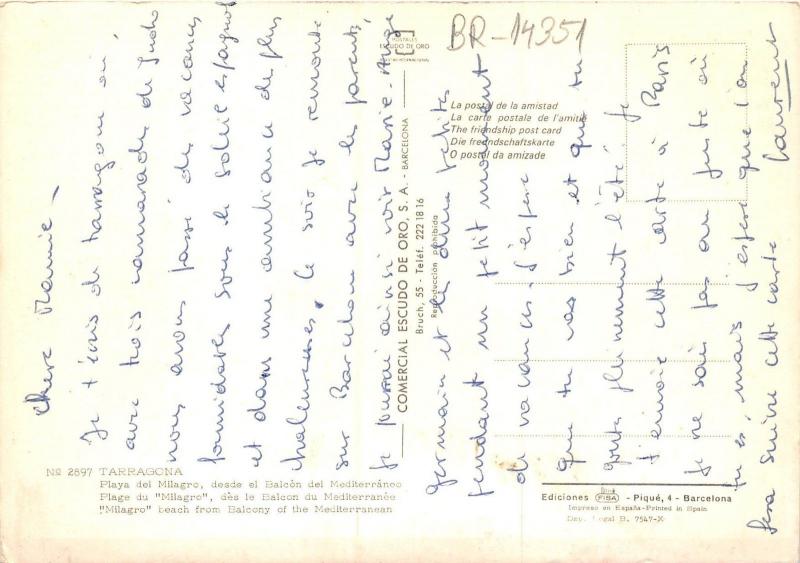 BR-14351
Chère Mamie.
Je t'écris de Tarragone où
avec trois camarades de judo
nous avons passé des vacances
formidables sous le soleil espagnol
et dans une ambiance des plus
chaleureuses. Ce soir je remonte
sur Barcelone avec les parents,
je pourrai ainsi voir Marie-Ange
germain et les deux petites
pendant un petit moment
de vacances. J'espère
que tu vas bien et que tu
goûtes pleinement l'été. Je
t'envoie cette carte à Paris
je ne sais pas au juste où
tu es, mais j'espère que l'on
fera suivre cette carte
Laurent
POSTALES
ESCUDO DE ORO
La postal de la amistad
La carte postale de l'amitié
The friendship post card
Die freundschaftskarte
O postal da amizade
COMERCIAL ESCUDO DE ORO, S. A. - BARCELONA
Bruch, 55 - Teléf. 222 18 16
Reproducción prohibida
Nº 2897 TARRAGONA
Playa del Milagro, desde el Balcón del Mediterráneo
Plage du "Milagro", dès le Balcon du Mediterranée
"Milagro" beach from Balcony of the Mediterranean
Ediciones FISA - Piqué, 4 - Barcelona
Impreso en España-Printed in Spain
Dep. Legal B. 7547-X